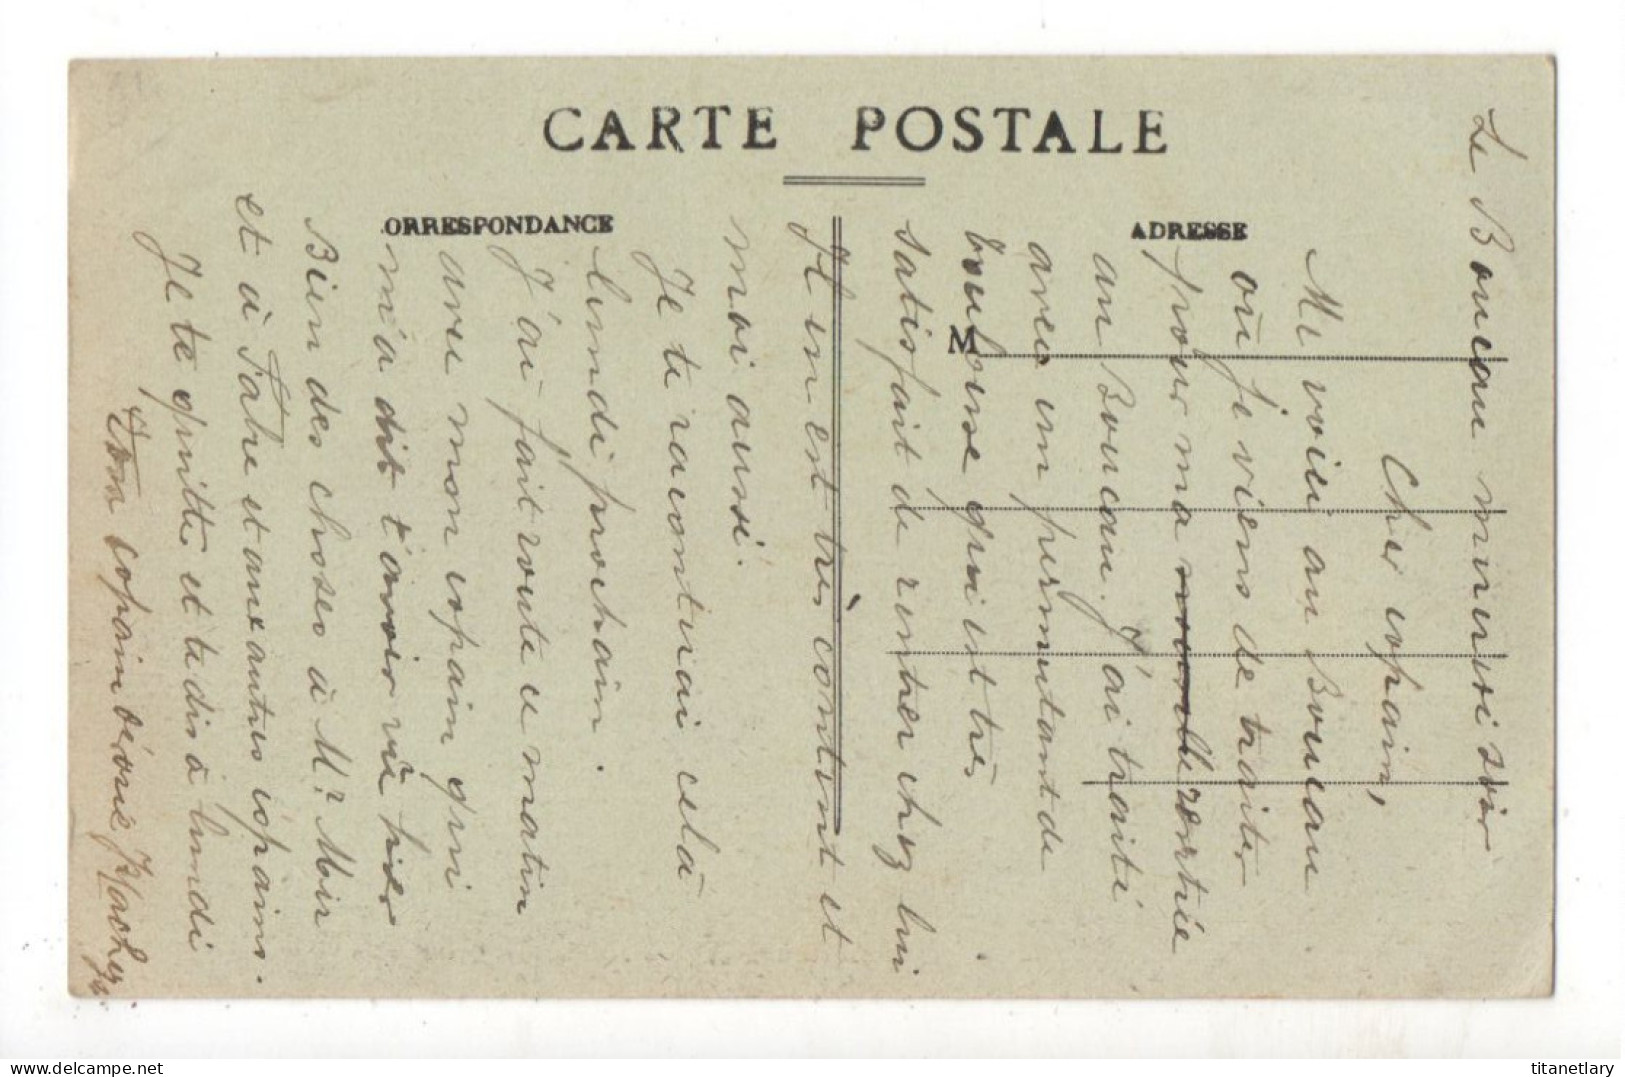 CARTE POSTALE
ORRESPONDANCE
ADRESSE
M
Le Boucau mercredi soir
Cher copain,
Me voici au Boucau
où je viens de traiter
pour ma nouvelle sortie
au Boucau. J'ai traité
avec un permutant de
Toulouse qui est très
satisfait de rentrer chez lui
Il en est très content et
moi aussi.
Je te raconterai cela
lundi prochain.
J'ai fait route ce matin
avec mon copain qui
m'a dit t'avoir vu hier
Bien des choses à Mr Moir
et à Fabre et aux autres copains.
Je te quitte et te dis à lundi
Ton copain dévoué
titanetlary
delcampe.net